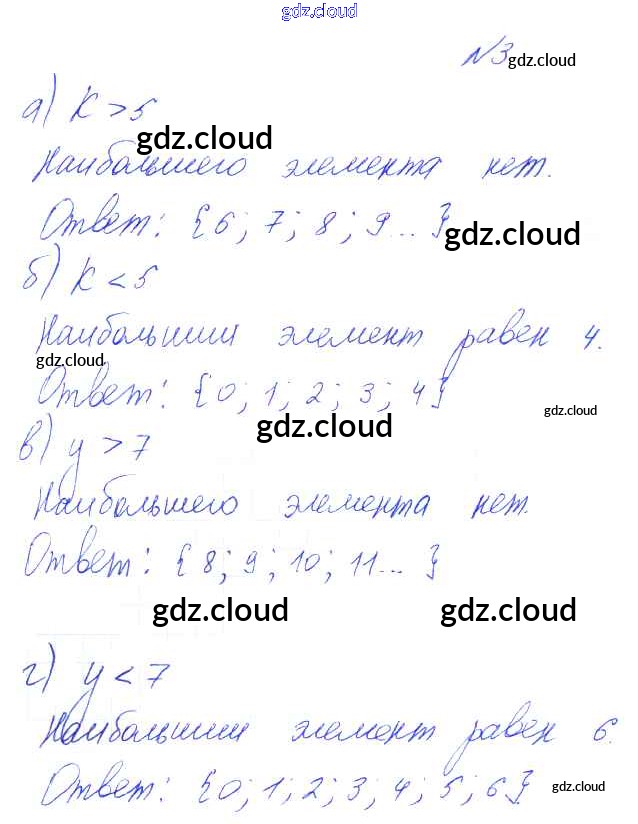 gdz.cloud
№3 gdz.cloud
а) K > 5
gdz.cloud
Наибольшего элемента нет.
Ответ: {6; 7; 8; 9... }
gdz.cloud
б) K < 5
Наибольший элемент равен 4.
gdz.cloud
Ответ: {0; 1; 2; 3; 4}
gdz.cloud
gdz.cloud
в) y > 7
Наибольшего элемента нет.
Ответ: {8; 9; 10; 11... }
gdz.cloud gdz.cloud
г) y < 7
Наибольший элемент равен 6.
Ответ: {0; 1; 2; 3; 4; 5; 6}
gdz.cloud